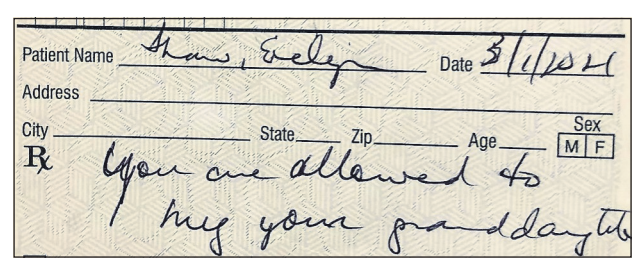 Patient Name Shaw, Evelyn Date 3/1/2021
Address
City State Zip Age Sex M F
Rx You are allowed to
hug your granddaughte